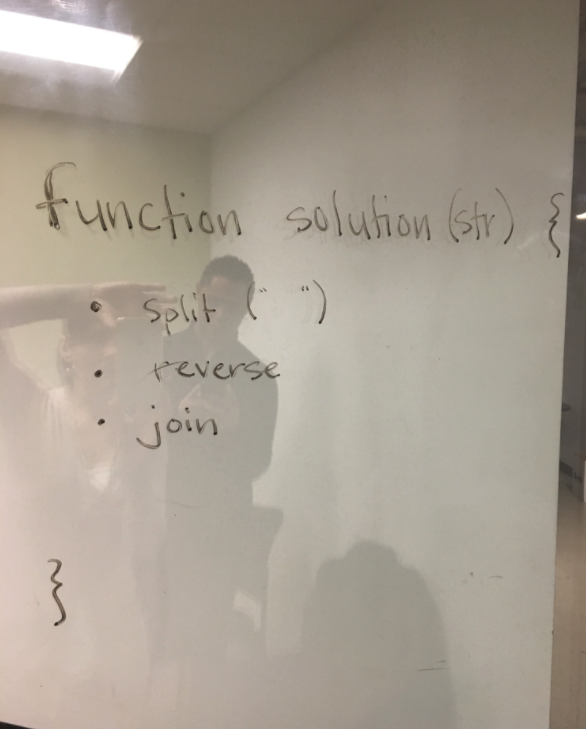 function solution (str) {
• split (" ")
• reverse
• join
}